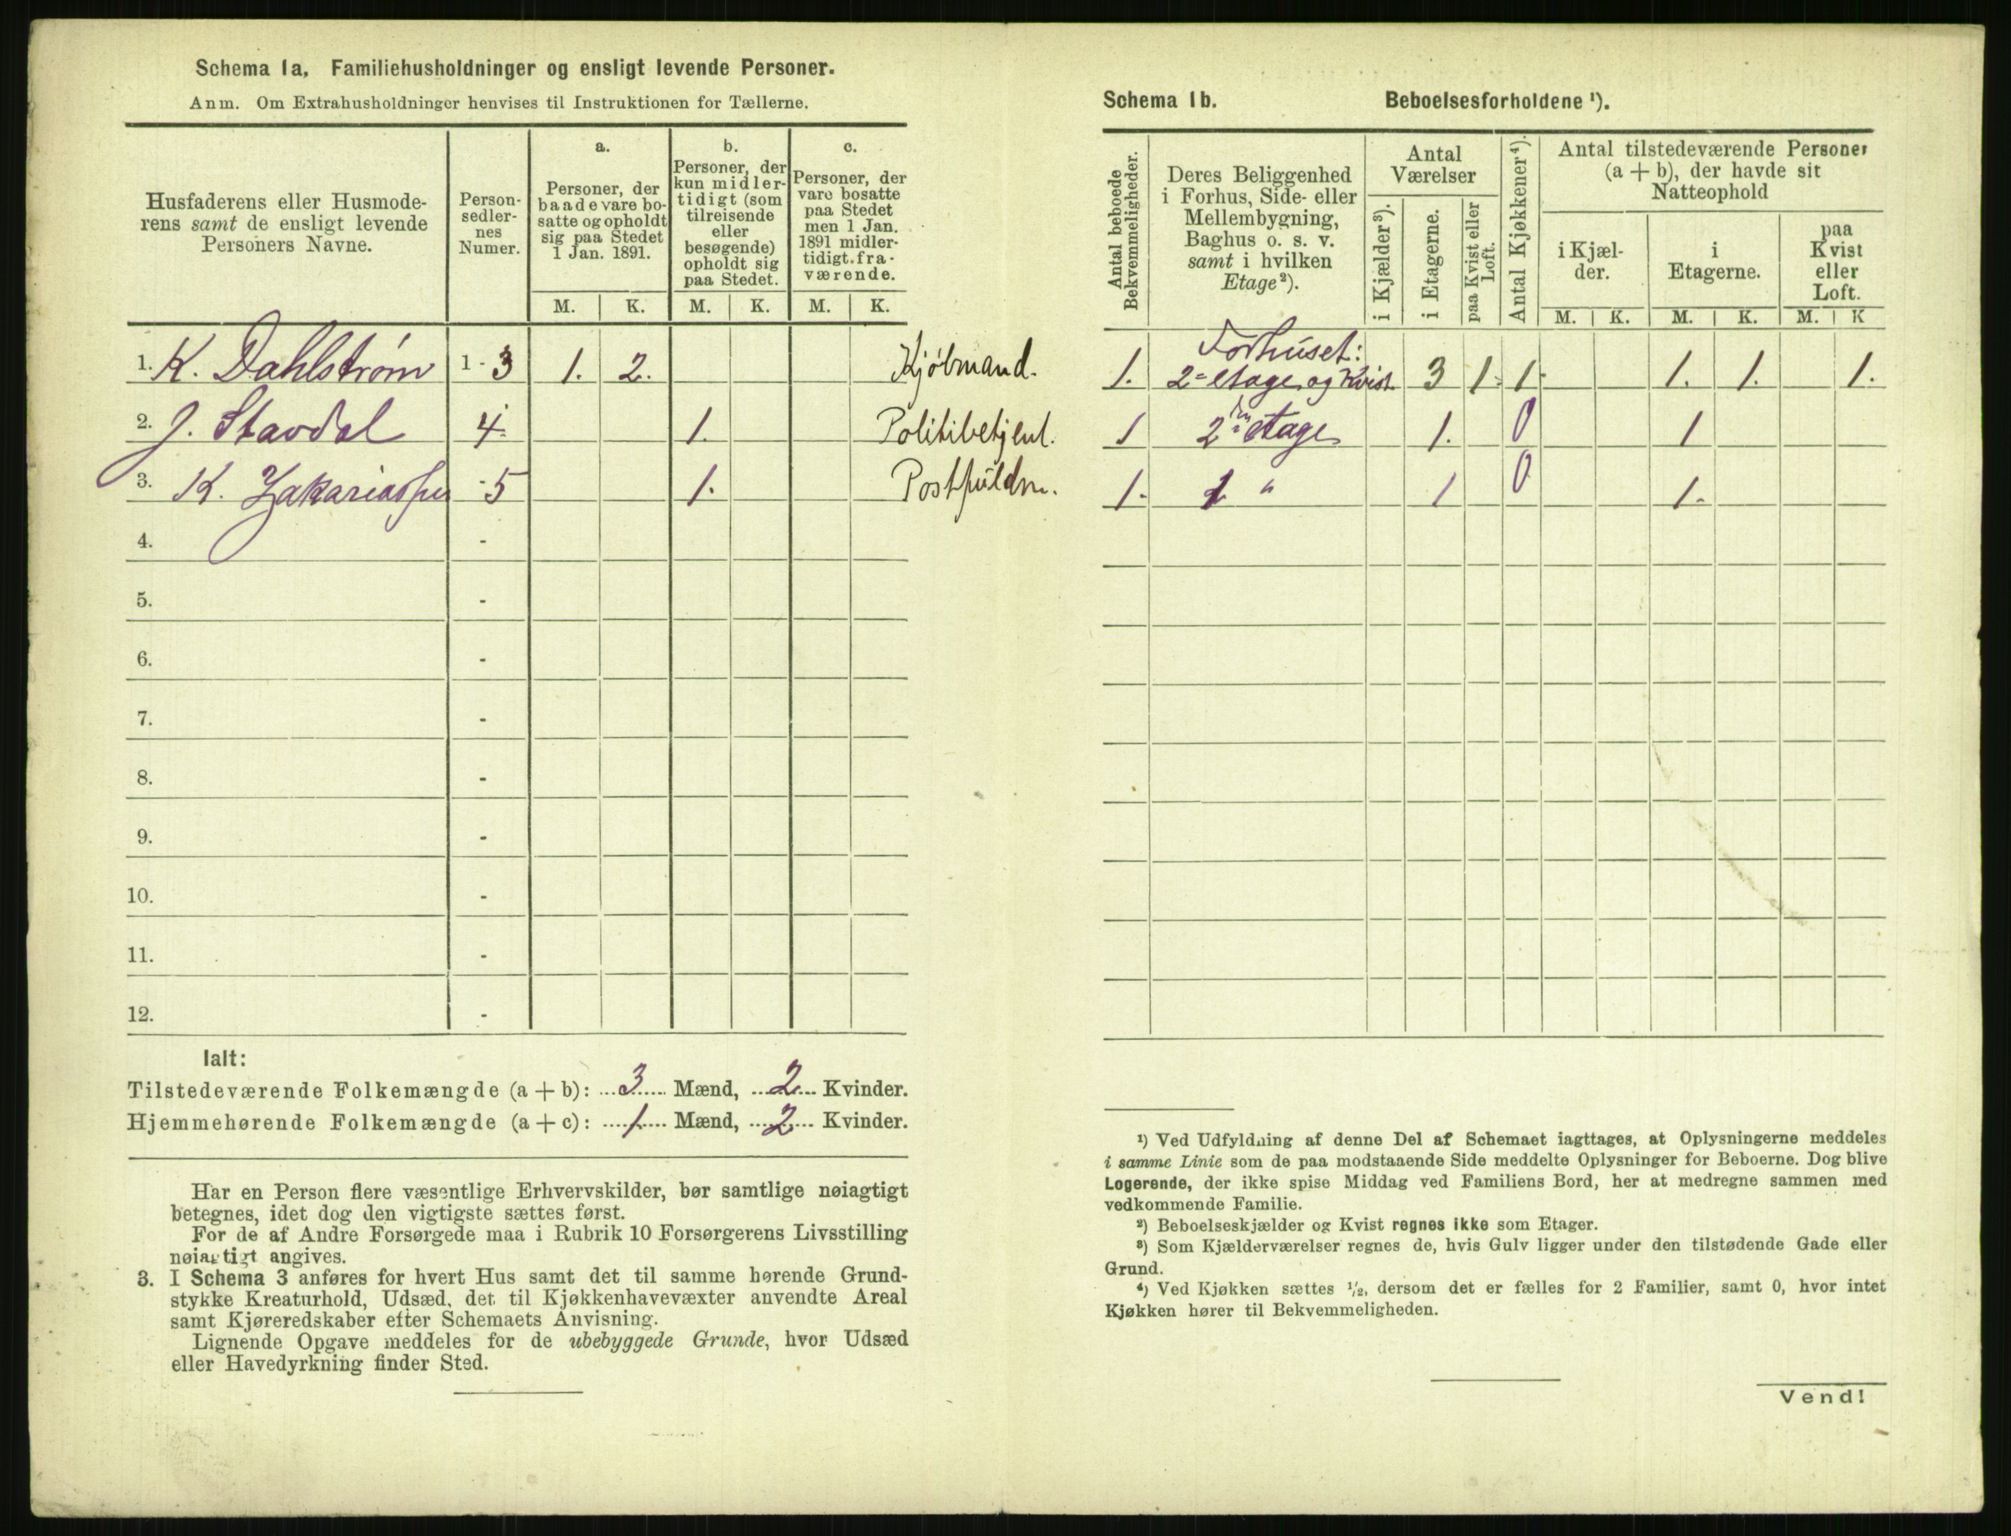 Schema 1a. Familiehusholdninger og ensligt levende Personer.
Anm. Om Extrahusholdninger henvises til Instruktionen for Tællerne.
Husfaderens eller Husmode-
rens samt de ensligt levende
Personers Navne.
Person-
sedler-
nes
Numer.
a.
Personer, der
baade vare bo-
satte og opholdt
sig paa Stedet
1 Jan. 1891.
b.
Personer, der
kun midler-
tidigt (som
tilreisende
eller
besøgende)
opholdt sig
paa Stedet.
c.
Personer, der
vare bosatte
paa Stedet
men 1 Jan.
1891 midler-
tidigt fra-
værende.
M. K. M. K. M. K.
1. K. Dahlstrøm 1-3 1. 2. Kjøbmand.
2. J. Stavdal 4- 1. Politibetjent.
3. K. Zakariassen -5 1. Postfuldm.
4. -
5. -
6. -
7. -
8. -
9. -
10. -
11. -
12. -
Ialt:
Tilstedeværende Folkemængde (a + b): 3 Mænd, 2 Kvinder.
Hjemmehørende Folkemængde (a + c): 1 Mænd, 2 Kvinder.
Har en Person flere væsentlige Erhvervskilder, bør samtlige nøiagtigt
betegnes, idet dog den vigtigste sættes først.
For de af Andre Forsørgede maa i Rubrik 10 Forsørgerens Livsstilling
nøiagtigt angives.
3. I Schema 3 anføres for hvert Hus samt det til samme hørende Grund-
stykke Kreaturhold, Udsæd, det til Kjøkkenhavevæxter anvendte Areal
samt Kjøreredskaber efter Schemaets Anvisning.
Lignende Opgave meddeles for de ubebyggede Grunde, hvor Udsæd
eller Havedyrkning finder Sted.
Schema 1b. Beboelsesforholdene ¹).
Antal beboede
Bekvemmeligheder.
Deres Beliggenhed
i Forhus, Side- eller
Mellembygning,
Baghus o. s. v.
samt i hvilken
Etage²).
Antal
Værelser
i Kjælder³).
i Etagerne.
paa Kvist eller
Loft.
Antal Kjøkkener⁴).
Antal tilstedeværende Personer
(a + b), der havde sit
Natteophold
i Kjæl-
der.
i
Etagerne.
paa
Kvist
eller
Loft.
M. K. M. K. M. K
Forhuset:
1. 2= etage og Kvist 3 1. 1. 1. 1. 1.
1 2den etage 1. 0 1
1. 1 " 1 0 1.
¹) Ved Udfyldning af denne Del af Schemaet iagttages, at Oplysningerne meddeles
i samme Linie som de paa modstaaende Side meddelte Oplysninger for Beboerne. Dog blive
Logerende, der ikke spise Middag ved Familiens Bord, her at medregne sammen med
vedkommende Familie.
²) Beboelseskjælder og Kvist regnes ikke som Etager.
³) Som Kjælderværelser regnes de, hvis Gulv ligger under den tilstødende Gade eller
Grund.
⁴) Ved Kjøkken sættes ½, dersom det er fælles for 2 Familier, samt 0, hvor intet
Kjøkken hører til Bekvemmeligheden.
Vend!